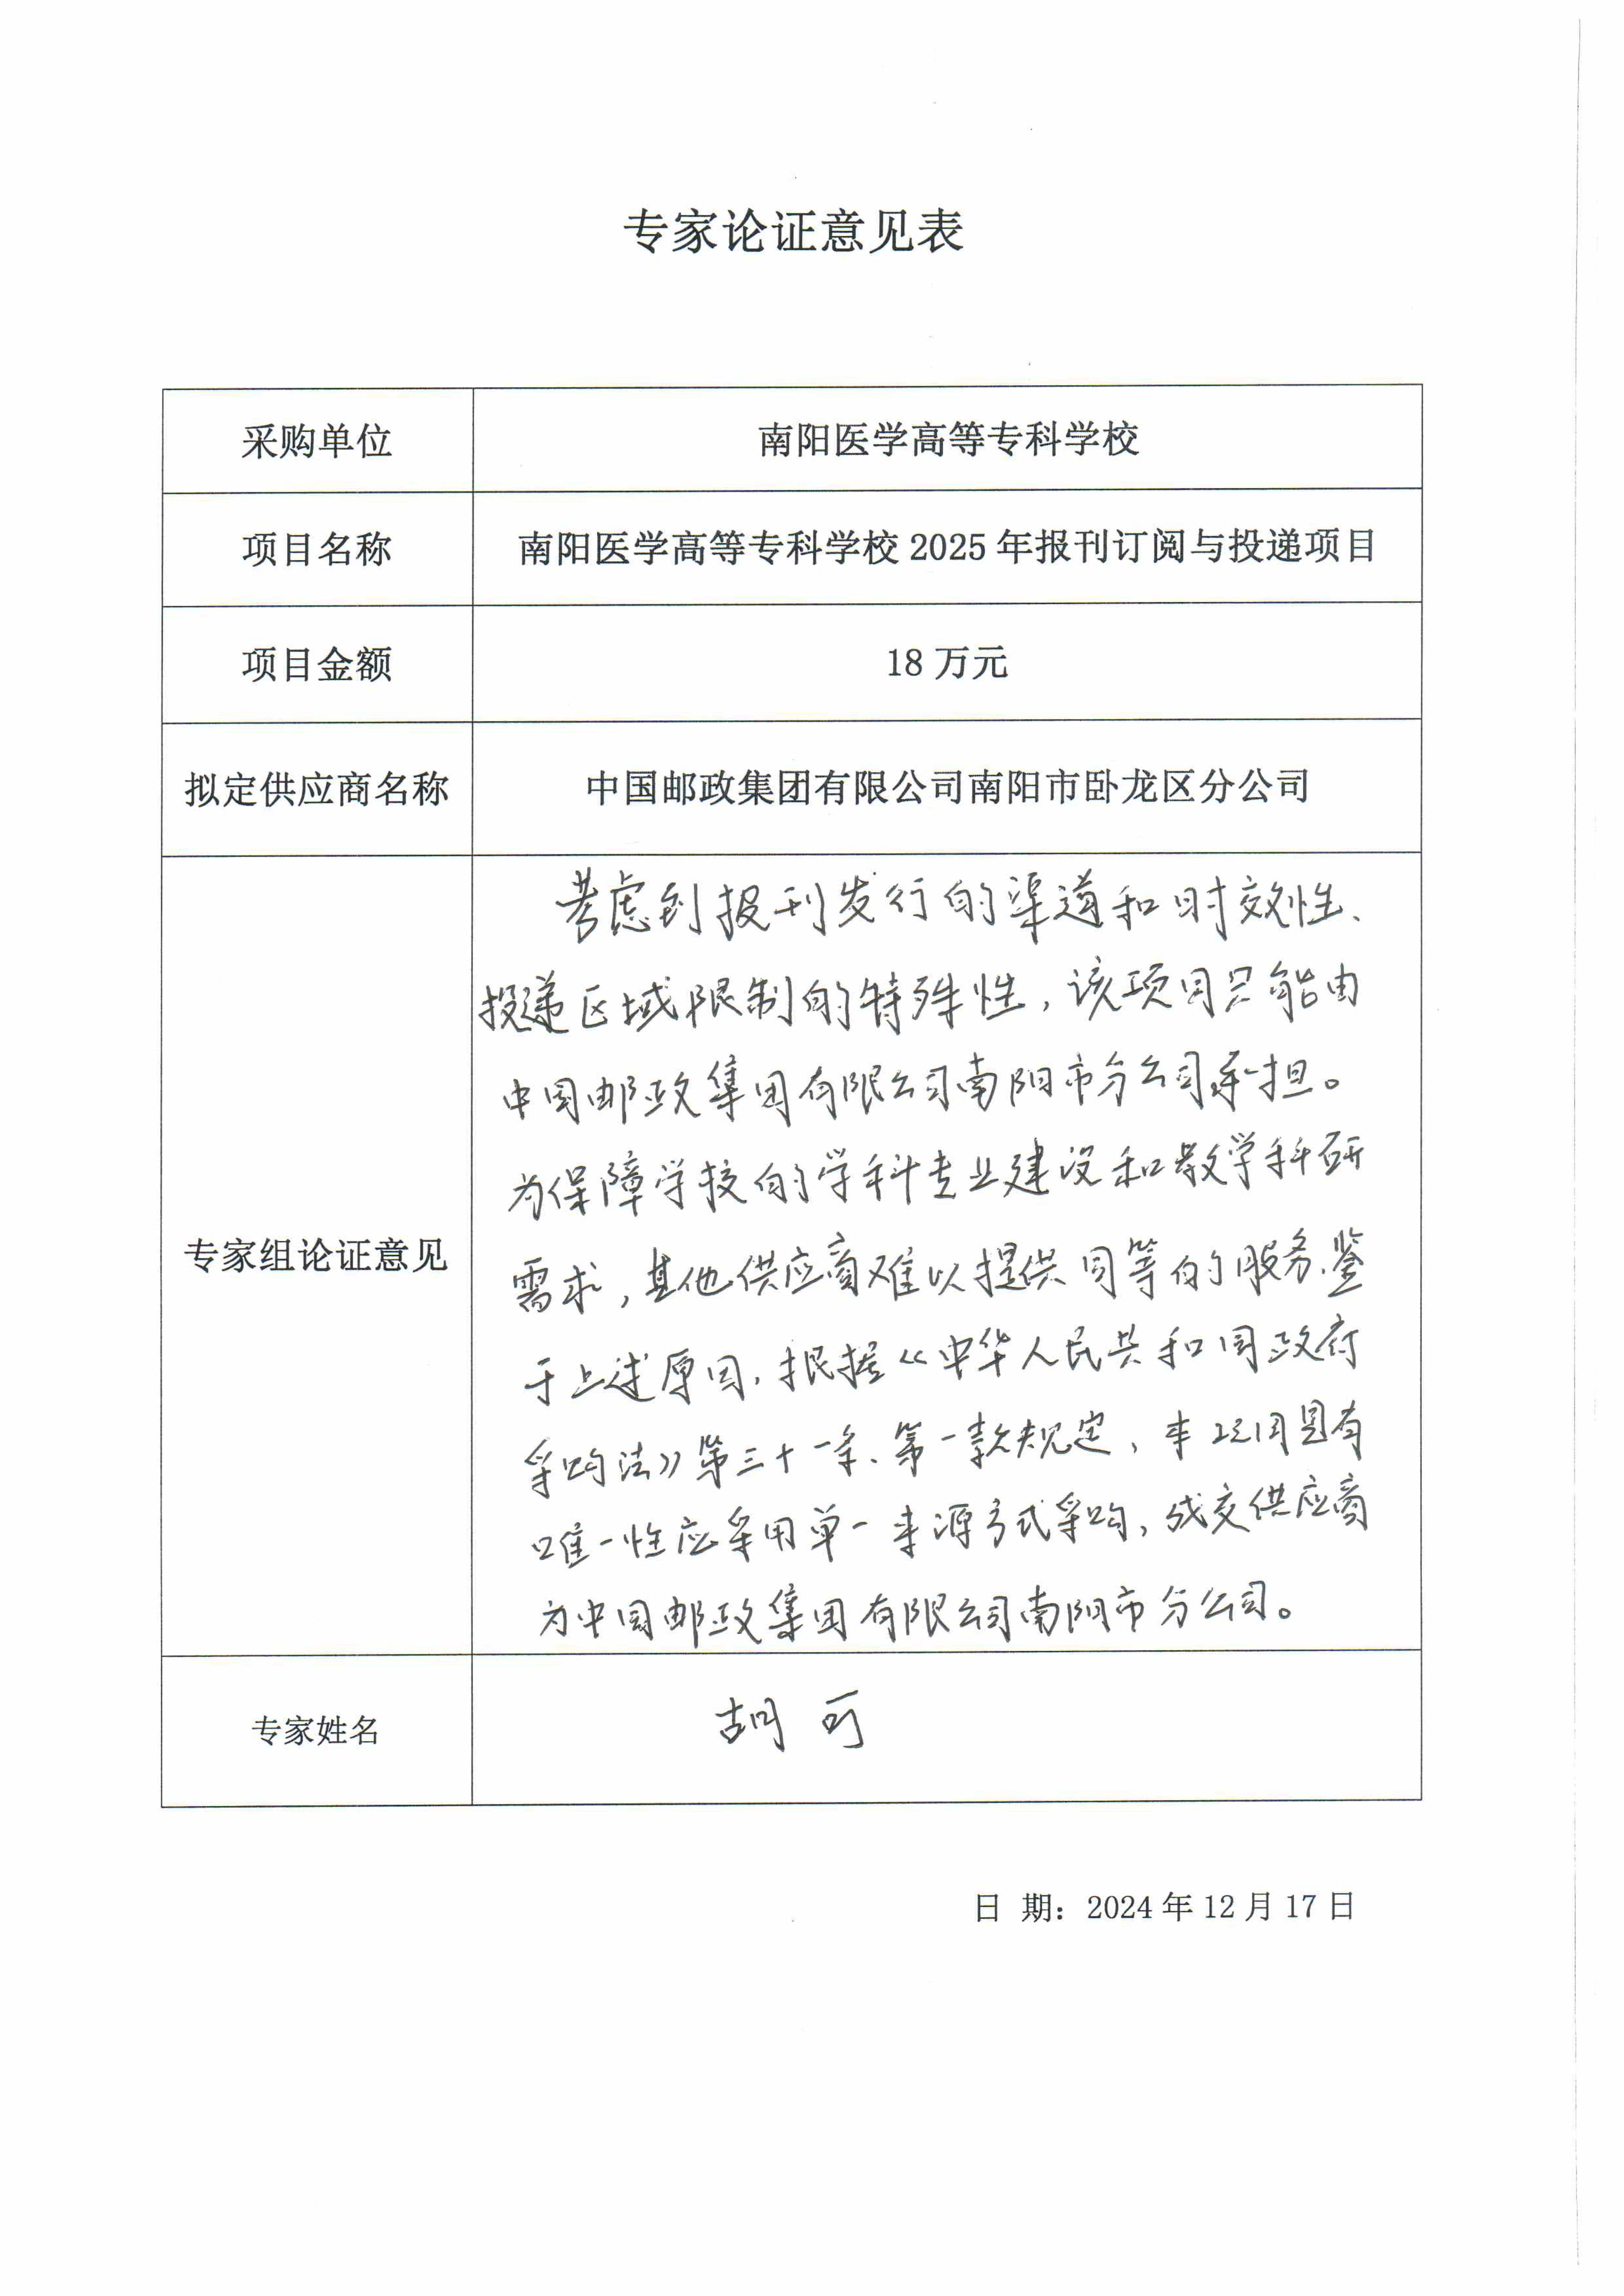 专家论证意见表
采购单位 南阳医学高等专科学校
项目名称 南阳医学高等专科学校 2025 年报刊订阅与投递项目
项目金额 18 万元
拟定供应商名称 中国邮政集团有限公司南阳市卧龙区分公司
专家组论证意见
考虑到报刊发行的渠道和时效性、
投递区域限制的特殊性，该项目只能由
中国邮政集团有限公司南阳市分公司承担。
为保障学校的学科专业建设和教学科研
需求，其他供应商难以提供同等的服务.鉴
于上述原因，根据《中华人民共和国政府
采购法》第三十一条、第一款规定，本项目具有
唯一性应采用单一来源方式采购，成交供应商
为中国邮政集团有限公司南阳市分公司。
专家姓名 胡可
日 期：2024 年 12 月 17 日